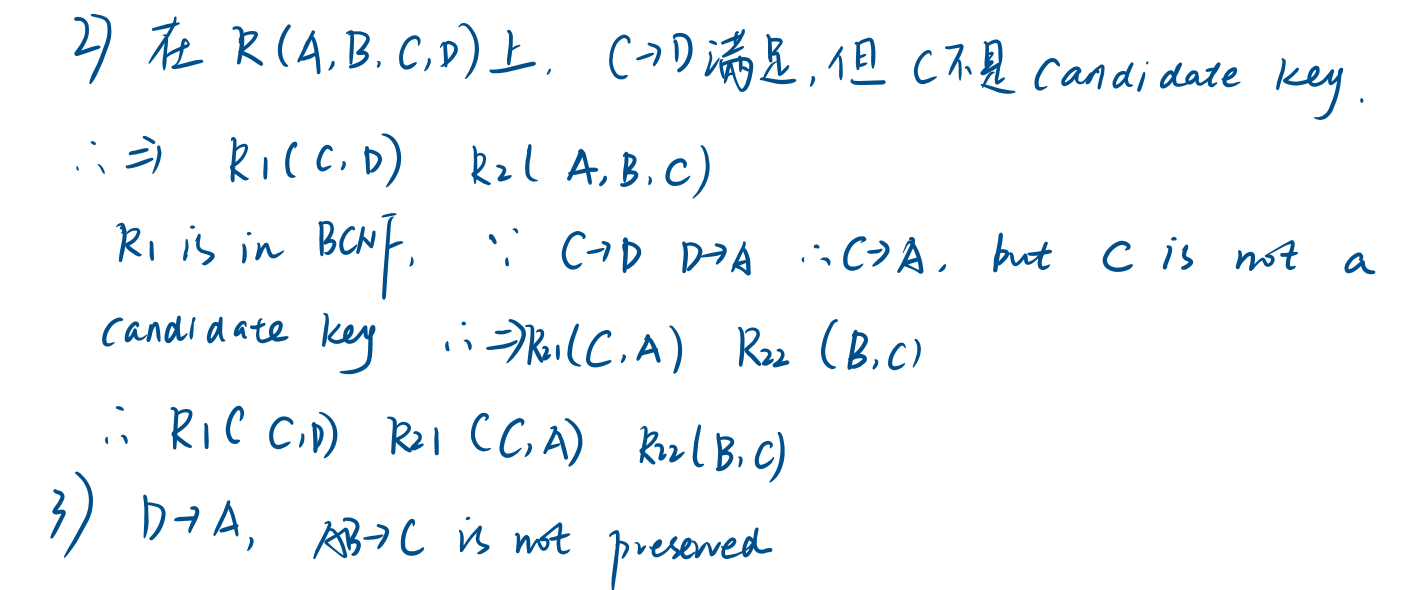 2) 在 R(A,B,C,D)上, C→D满足,但 C不是 candidate key.
∴⇒ R1(C,D) R2(A,B,C)
R1 is in BCNF, ∵ C→D D→A ∴C→A, but C is not a
candidate key ∴⇒R21(C,A) R22 (B,C)
∴ R1(C,D) R21 (C,A) R22(B,C)
3) D→A, AB→C is not preserved